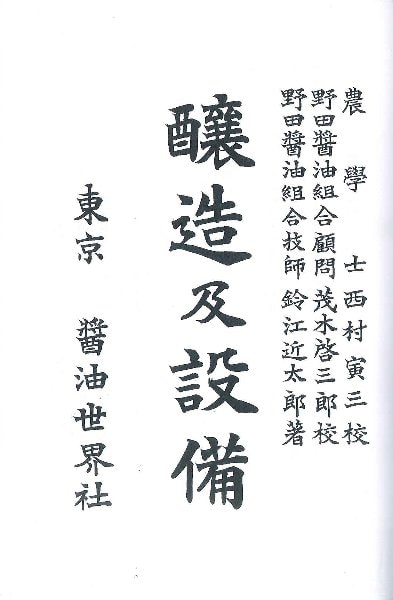 農學士西村寅三校
野田醬油組合顧問茂木啓三郎校
野田醬油組合技師鈴江近太郎著
釀造及設備
東京 醬油世界社